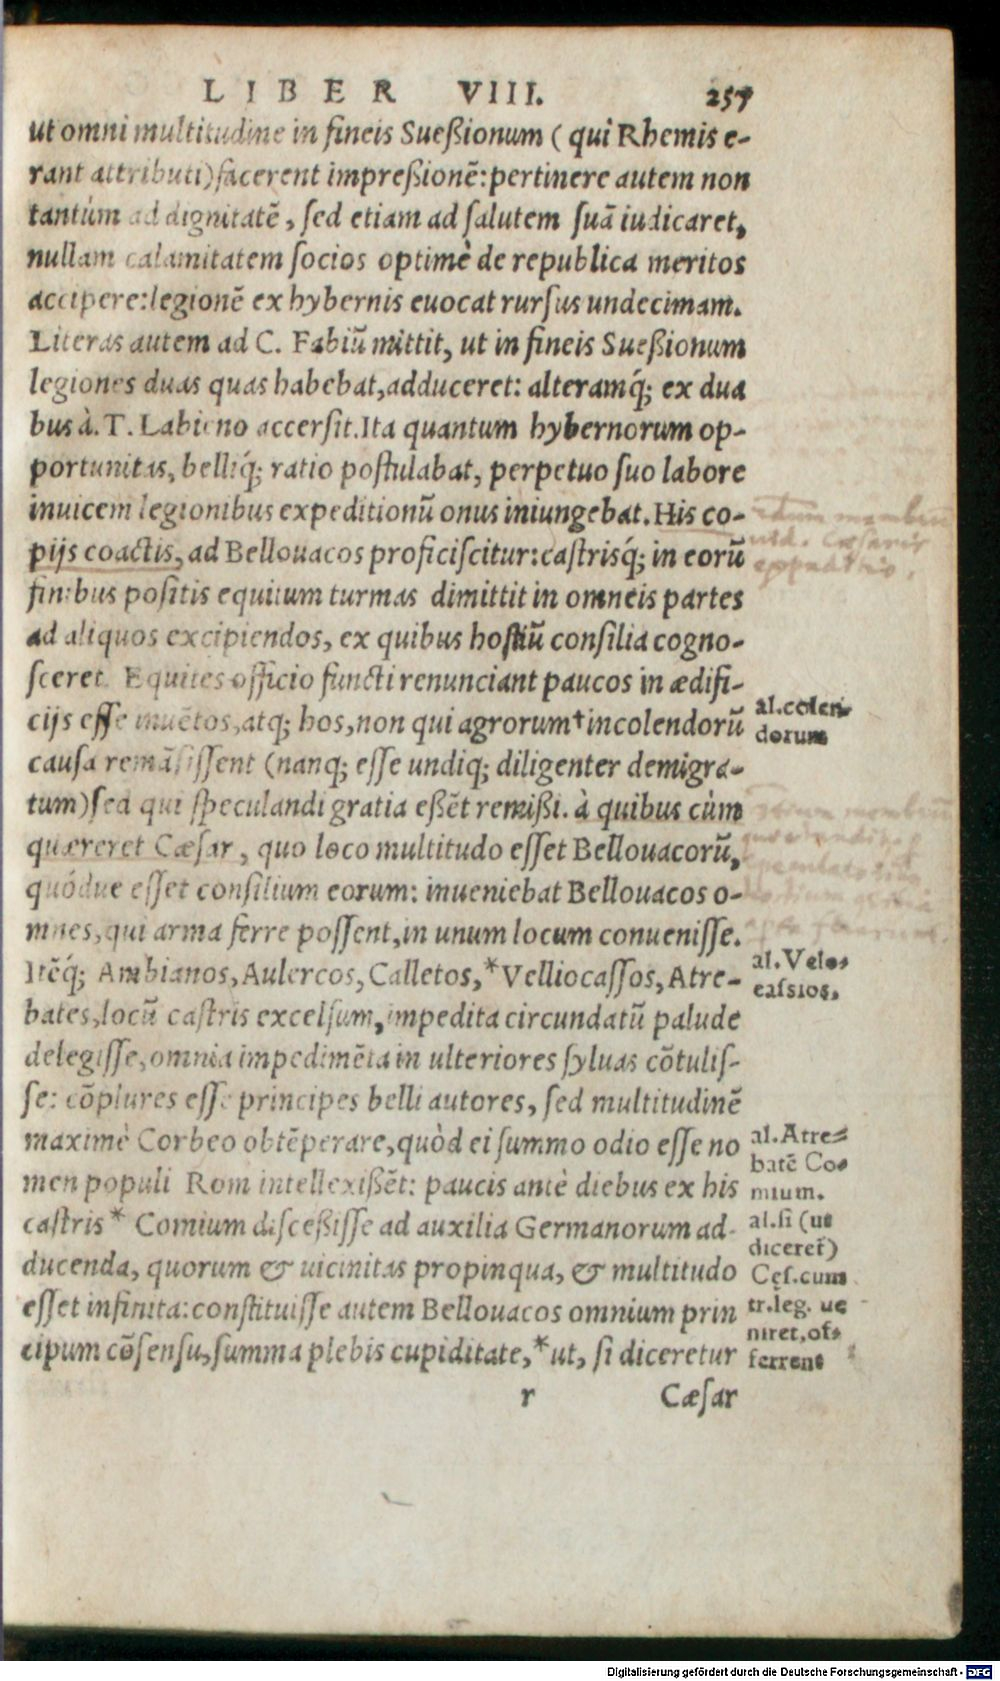 LIBER VIII. 257
ut omni multitudine in fineis Sueßionum (qui Rhemis e-
rant attributi) facerent impreßionẽ: pertinere autem non
tantùm ad dignitatẽ, sed etiam ad salutem suã iudicaret,
nullam calamitatem socios optimè de republica meritos
accipere: legionẽ ex hybernis euocat rursus undecimam.
Literas autem ad C. Fabiũ mittit, ut in fineis Sueßionum
legiones duas quas habebat, adduceret: alteramq́; ex dua
bus à. T. Labieno accersit. Ita quantum hybernorum op-
portunitas, belliq́; ratio postulabat, perpetuo suo labore
inuicem legionibus expeditionũ onus iniungebat. His co-
pijs coactis, ad Bellouacos proficiscitur: castrisq́; in eorũ
finibus positis equitum turmas dimittit in omneis partes
ad aliquos excipiendos, ex quibus hostiũ consilia cogno-
sceret. Equites officio functi renunciant paucos in ædifi-
cijs esse inuẽtos, atq; hos, non qui agrorum † incolendorũ
al. colen-
dorum
causa remãsissent (nanq; esse undiq; diligenter demigra-
tum) sed qui speculandi gratia eßẽt remißi. à quibus cùm
quæreret Cæsar, quo loco multitudo esset Bellouacorũ,
quódue esset consilium eorum: inueniebat Bellouacos o-
mnes, qui arma ferre possent, in unum locum conuenisse.
Itẽq́; Ambianos, Aulercos, Calletos, * Velliocassos, Atre-
al. Velo-
cassios.
bates, locũ castris excelsum, impedita circundatũ palude
delegisse, omnia impedimẽta in ulteriores syluas cõtulis-
se: cõplures esse principes belli autores, sed multitudinẽ
maximè Corbeo obtẽperare, quòd ei summo odio esse no
men populi Rom intellexißẽt: paucis antè diebus ex his
castris * Comium disceßisse ad auxilia Germanorum ad-
al. Atre-
batẽ Co-
mium.
ducenda, quorum & uicinitas propinqua, & multitudo
esset infinita: constituisse autem Bellouacos omnium prin
cipum cõsensu, summa plebis cupiditate, * ut, si diceretur
al. si (ut
diceret)
Cęs. cum
tr. leg. ue
niret, of-
ferrent
r Cæsar
Digitalisierung gefördert durch die Deutsche Forschungsgemeinschaft - DFG